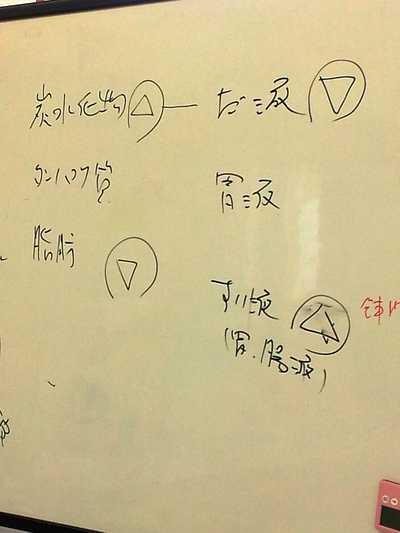 炭水化物
だ液
タンパク質
胃液
脂肪
すい液
(胃、腸液)